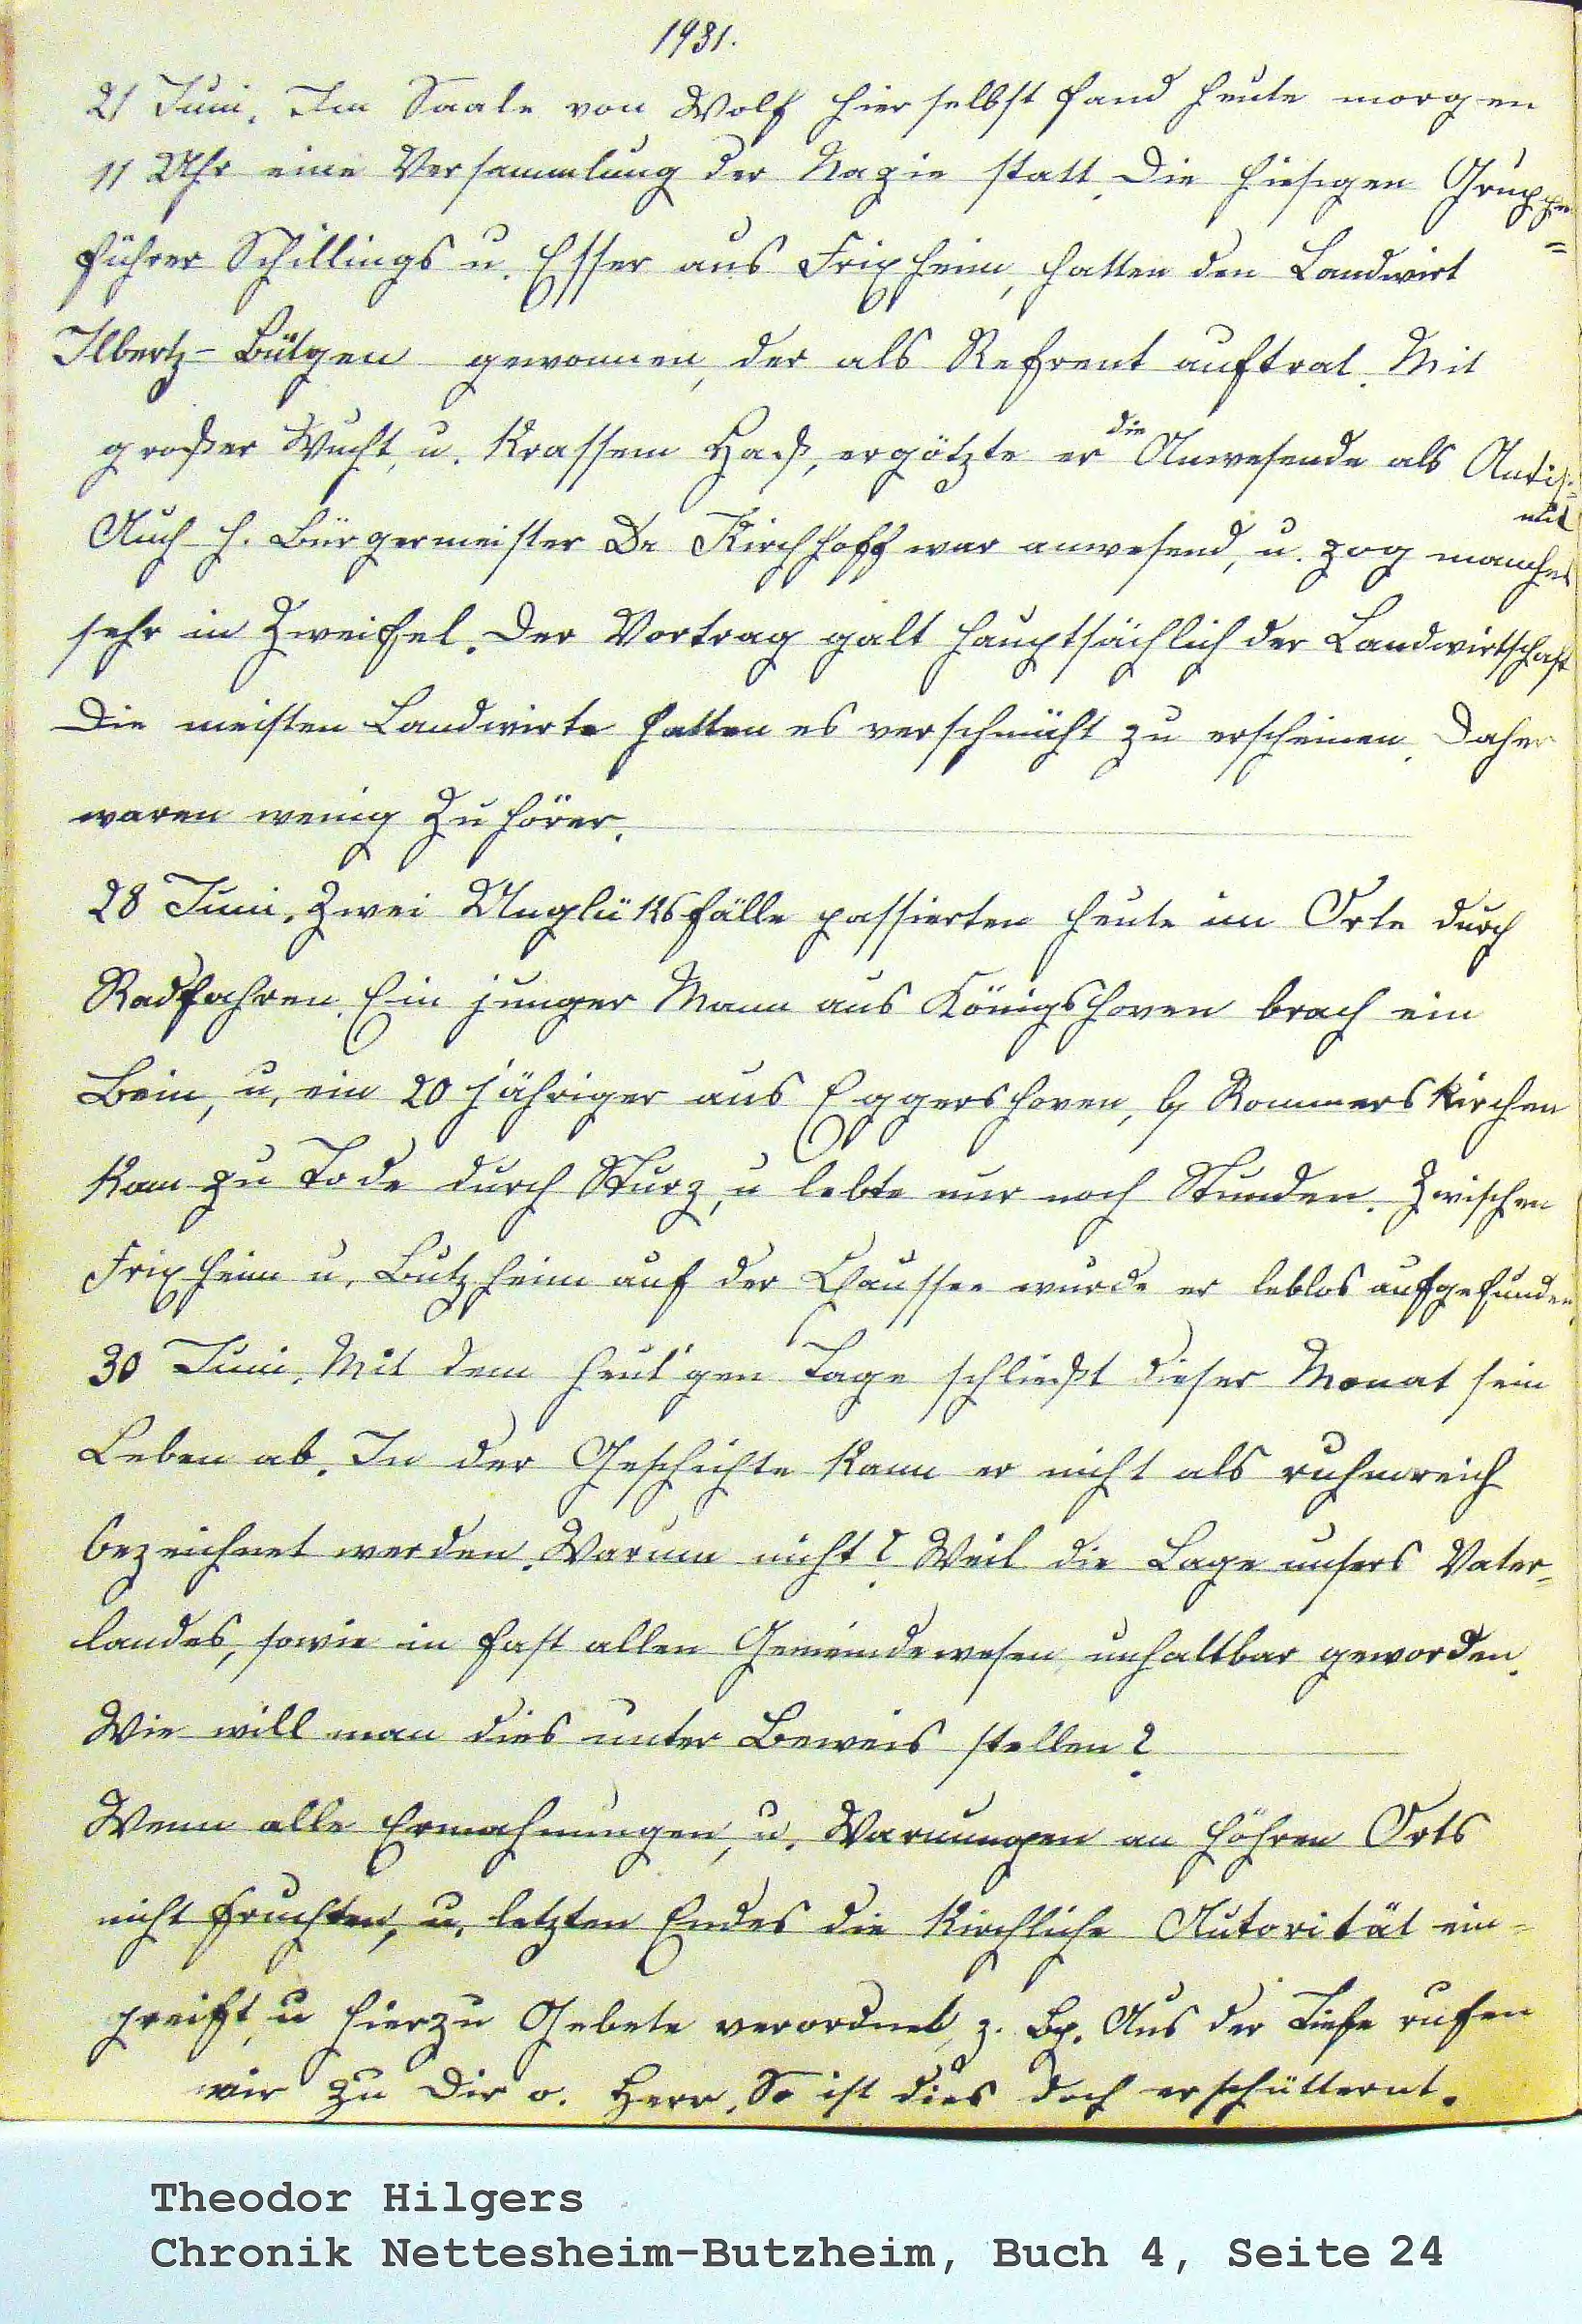 1931.
21 Juni. Im Saale von Wolf hierselbst fand heute morgen
11 Uhr eine Versammlung der Nazie statt. Die hiesigen Gruppen=
führer Schillings u. Esser aus Frixheim, hatten den Landwirt
Ilbertz-Bütgen gewonnen, der als Refrent auftrat. Mit
großer Wucht, u. krassem Haß, ergötzte er die Anwesende als Antise=
mit
Auch H. Bürgermeister Dr Kirchhoff war anwesend, u. zog manches
sehr in Zweifel. Der Vortrag galt hauptsächlich der Landwirtschaft
Die meisten Landwirte hatten es verschmäht zu erscheinen. Daher
waren wenig Zuhörer.
28 Juni. Zwei Unglüksfälle passierten heute im Orte durch
Radfahren. Ein junger Mann aus Königshoven brach ein
Bein, u. ein 20 jähriger aus Eggershoven, b/ Rommerskirchen
kam zu Tode durch Sturz, u lebte nur noch Stunden. Zwischen
Frixheim u. Butzheim auf der Chaussee wurde er leblos aufgefunden.
30 Juni. Mit dem heut'gen Tage schließt dieser Monat sein
Leben ab. In der Geschichte kann er nicht als ruhmreich
bezeichnet werden. Warum nicht? Weil die Lage unsers Vater=
landes, sowie in fast allen Gemeindewesen, unhaltbar geworden.
Wie will man dies unter Beweis stellen?
Wenn alle Ermahnungen, u. Warnungen an höhren Orts
nicht fruchten, u. letzten Endes die kirchliche Autorität ein=
greift, u hierzu Gebete verordnet, z. Bp. Aus der Tiefe rufen
wir zu Dir o. Herr. So ist dies doch erschütternt.
Theodor Hilgers
Chronik Nettesheim-Butzheim, Buch 4, Seite 24